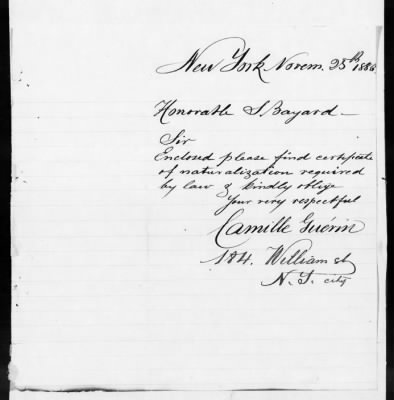 New York Novem. 25th 188
Honorable S Bayard —
Sir
Enclosed please find certificate
of naturalization required
by law & kindly oblige
Your very respectful
Camille Guérin
184. William st
N. Y. city